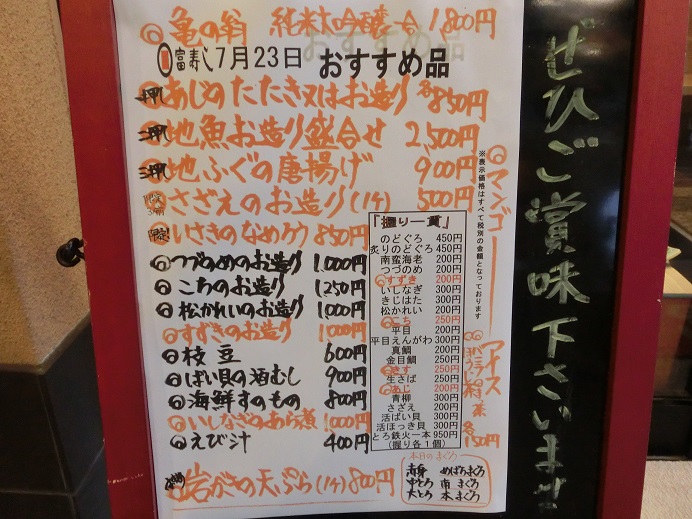 ◎亀の翁 純米大吟醸一合 1,800円
富寿し 7月23日 おすすめ品
一押 あじのたたき又はお造り 各850円
二押 地魚お造り盛合せ 2,500円
三押 地ふぐの唐揚げ 900円
限定 さざえのお造り(1ケ) 500円
限定 いさきのなめろう 850円
◎つづのめのお造り 1,000円
◎こちのお造り 1,250円
◎松かれいのお造り 1,000円
◎すずきのお造り 1,000円
◎枝豆 600円
◎ばい貝の酒むし 900円
◎海鮮すのもの 800円
◎いしなぎのあら煮 1,000円
◎えび汁 400円
岩がきの天ぷら(1ケ) 800円
『握り一貫』
のどぐろ 450円
炙りのどぐろ 450円
南蛮海老 200円
つづのめ 200円
◎すずき 200円
いしなぎ 300円
きじはた 300円
松かれい 200円
◎こち 250円
平目 200円
平目えんがわ 300円
真鯛 200円
金目鯛 250円
◎きす 250円
生さば 250円
◎あじ 200円
青柳 300円
さざえ 200円
活ばい貝 300円
活ほっき貝 300円
とろ鉄火一本 950円
(握り各1個)
本日のまぐろ
赤身 めばちまぐろ
中とろ 南まぐろ
大とろ 本まぐろ
※表示価格はすべて税別の金額となっております
◎マンゴー
アイス
◎バニラ
◎抹茶
各150円
ぜひご賞味下さいませ